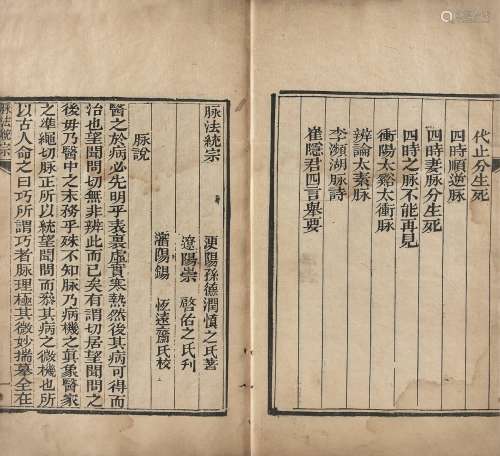 代止分生死
四時順逆脉
四時妻脉分生死
四時之脉不能再見
衝陽太谿太衝脉
辨論太素脉
李瀕湖脉詩
崔隱君四言舉要
脉法統宗
浭陽孫德潤慎之氏著
遼陽崇 啓佑之氏刋
瀋陽錫 恆遠齋氏校
脉說
醫之於病必先明乎表裏虛實寒熱然後其病可得而
治也望聞問切無非辨此而已矣有謂切居望聞問之
後毋乃醫中之末務乎殊不知脉乃病機之眞象醫家
之準繩切脉正所以統望聞問而叅其病之微機也所
以古人命之曰巧所謂巧者脉理極其微妙揣摹全在
脉法統宗